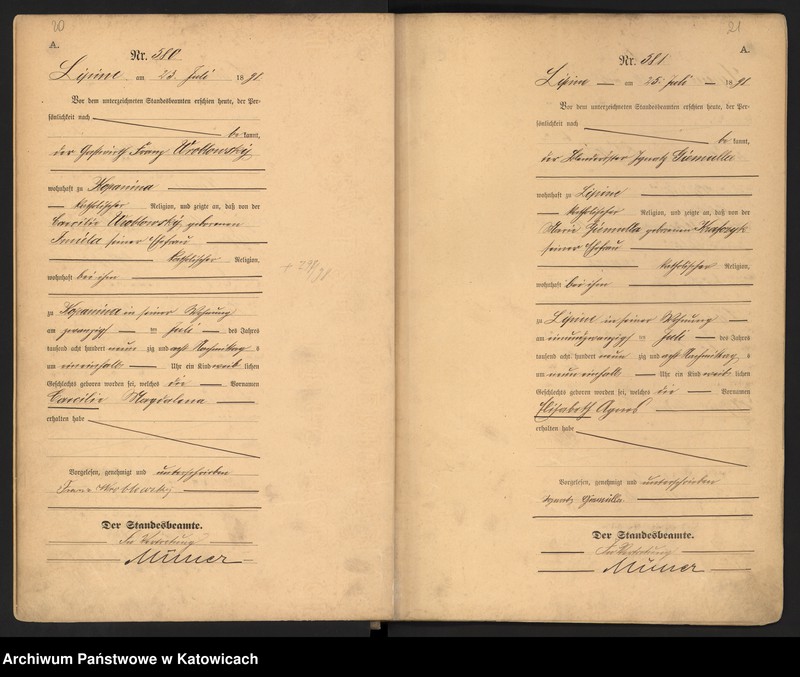 20
A.
Nr. 380
Lipine am 23. Juli 1891.
Vor dem unterzeichneten Standesbeamten erschien heute, der Per-
sönlichkeit nach
be kannt,
der Gastwirth Franz Wroblowsky
wohnhaft zu Kopanina
katholischer Religion, und zeigte an, daß von der
Caecilie Wroblowsky geborenen
seiner Ehefrau
katholischer Religion,
wohnhaft bei ihm
zu Kopanina in seiner Wohnung
am zwanzigsten Juli des Jahres
tausend acht hundert neun zig und
um Uhr ein Kind weib lichen
Geschlechts geboren worden sei, welches die Vornamen
Caecilie Magdalena
erhalten habe
Vorgelesen, genehmigt und unterschrieben
Franz Wroblowsky
Der Standesbeamte.
In Vertretung
21
A.
Nr. 381
Lipine am 25. Juli 1891.
Vor dem unterzeichneten Standesbeamten erschien heute, der Per-
sönlichkeit nach
be kannt,
der Ignatz Giemulla
wohnhaft zu Lipine
katholischer Religion, und zeigte an, daß von der
Marie Giemulla geborenen Krafczyk
seiner Ehefrau
katholischer Religion,
wohnhaft bei ihm
zu Lipine in seiner Wohnung
am einundzwanzigsten Juli des Jahres
tausend acht hundert neun zig und
um Uhr ein Kind weib lichen
Geschlechts geboren worden sei, welches die Vornamen
Elisabeth Agnes
erhalten habe
Vorgelesen, genehmigt und unterschrieben
Ignatz Giemulla
Der Standesbeamte.
In Vertretung
Archiwum Państwowe w Katowicach